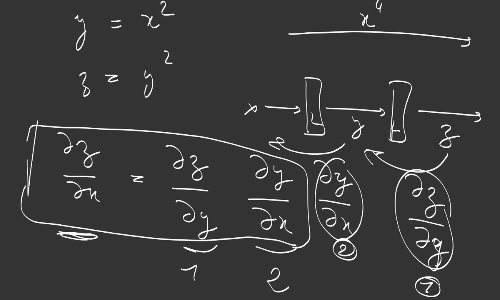 y = x²
z = y²
x⁴
x
y
z
∂z/∂x = ∂z/∂y ∂y/∂x
1
2
∂y/∂x
2
∂z/∂y
1